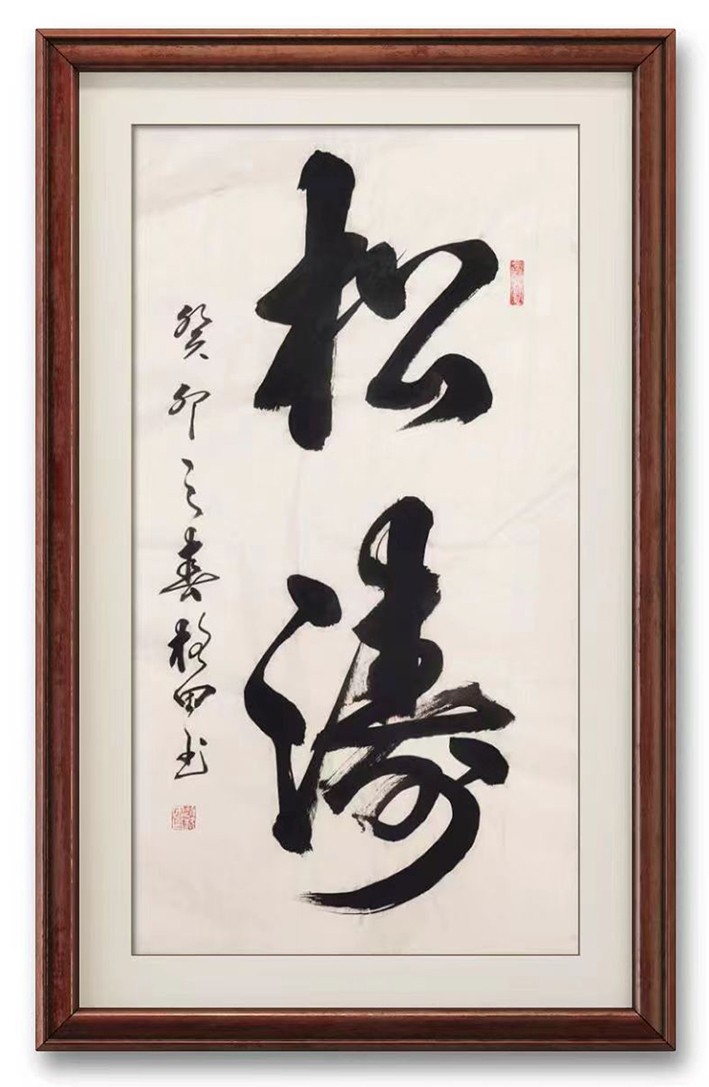 松涛
癸卯之春